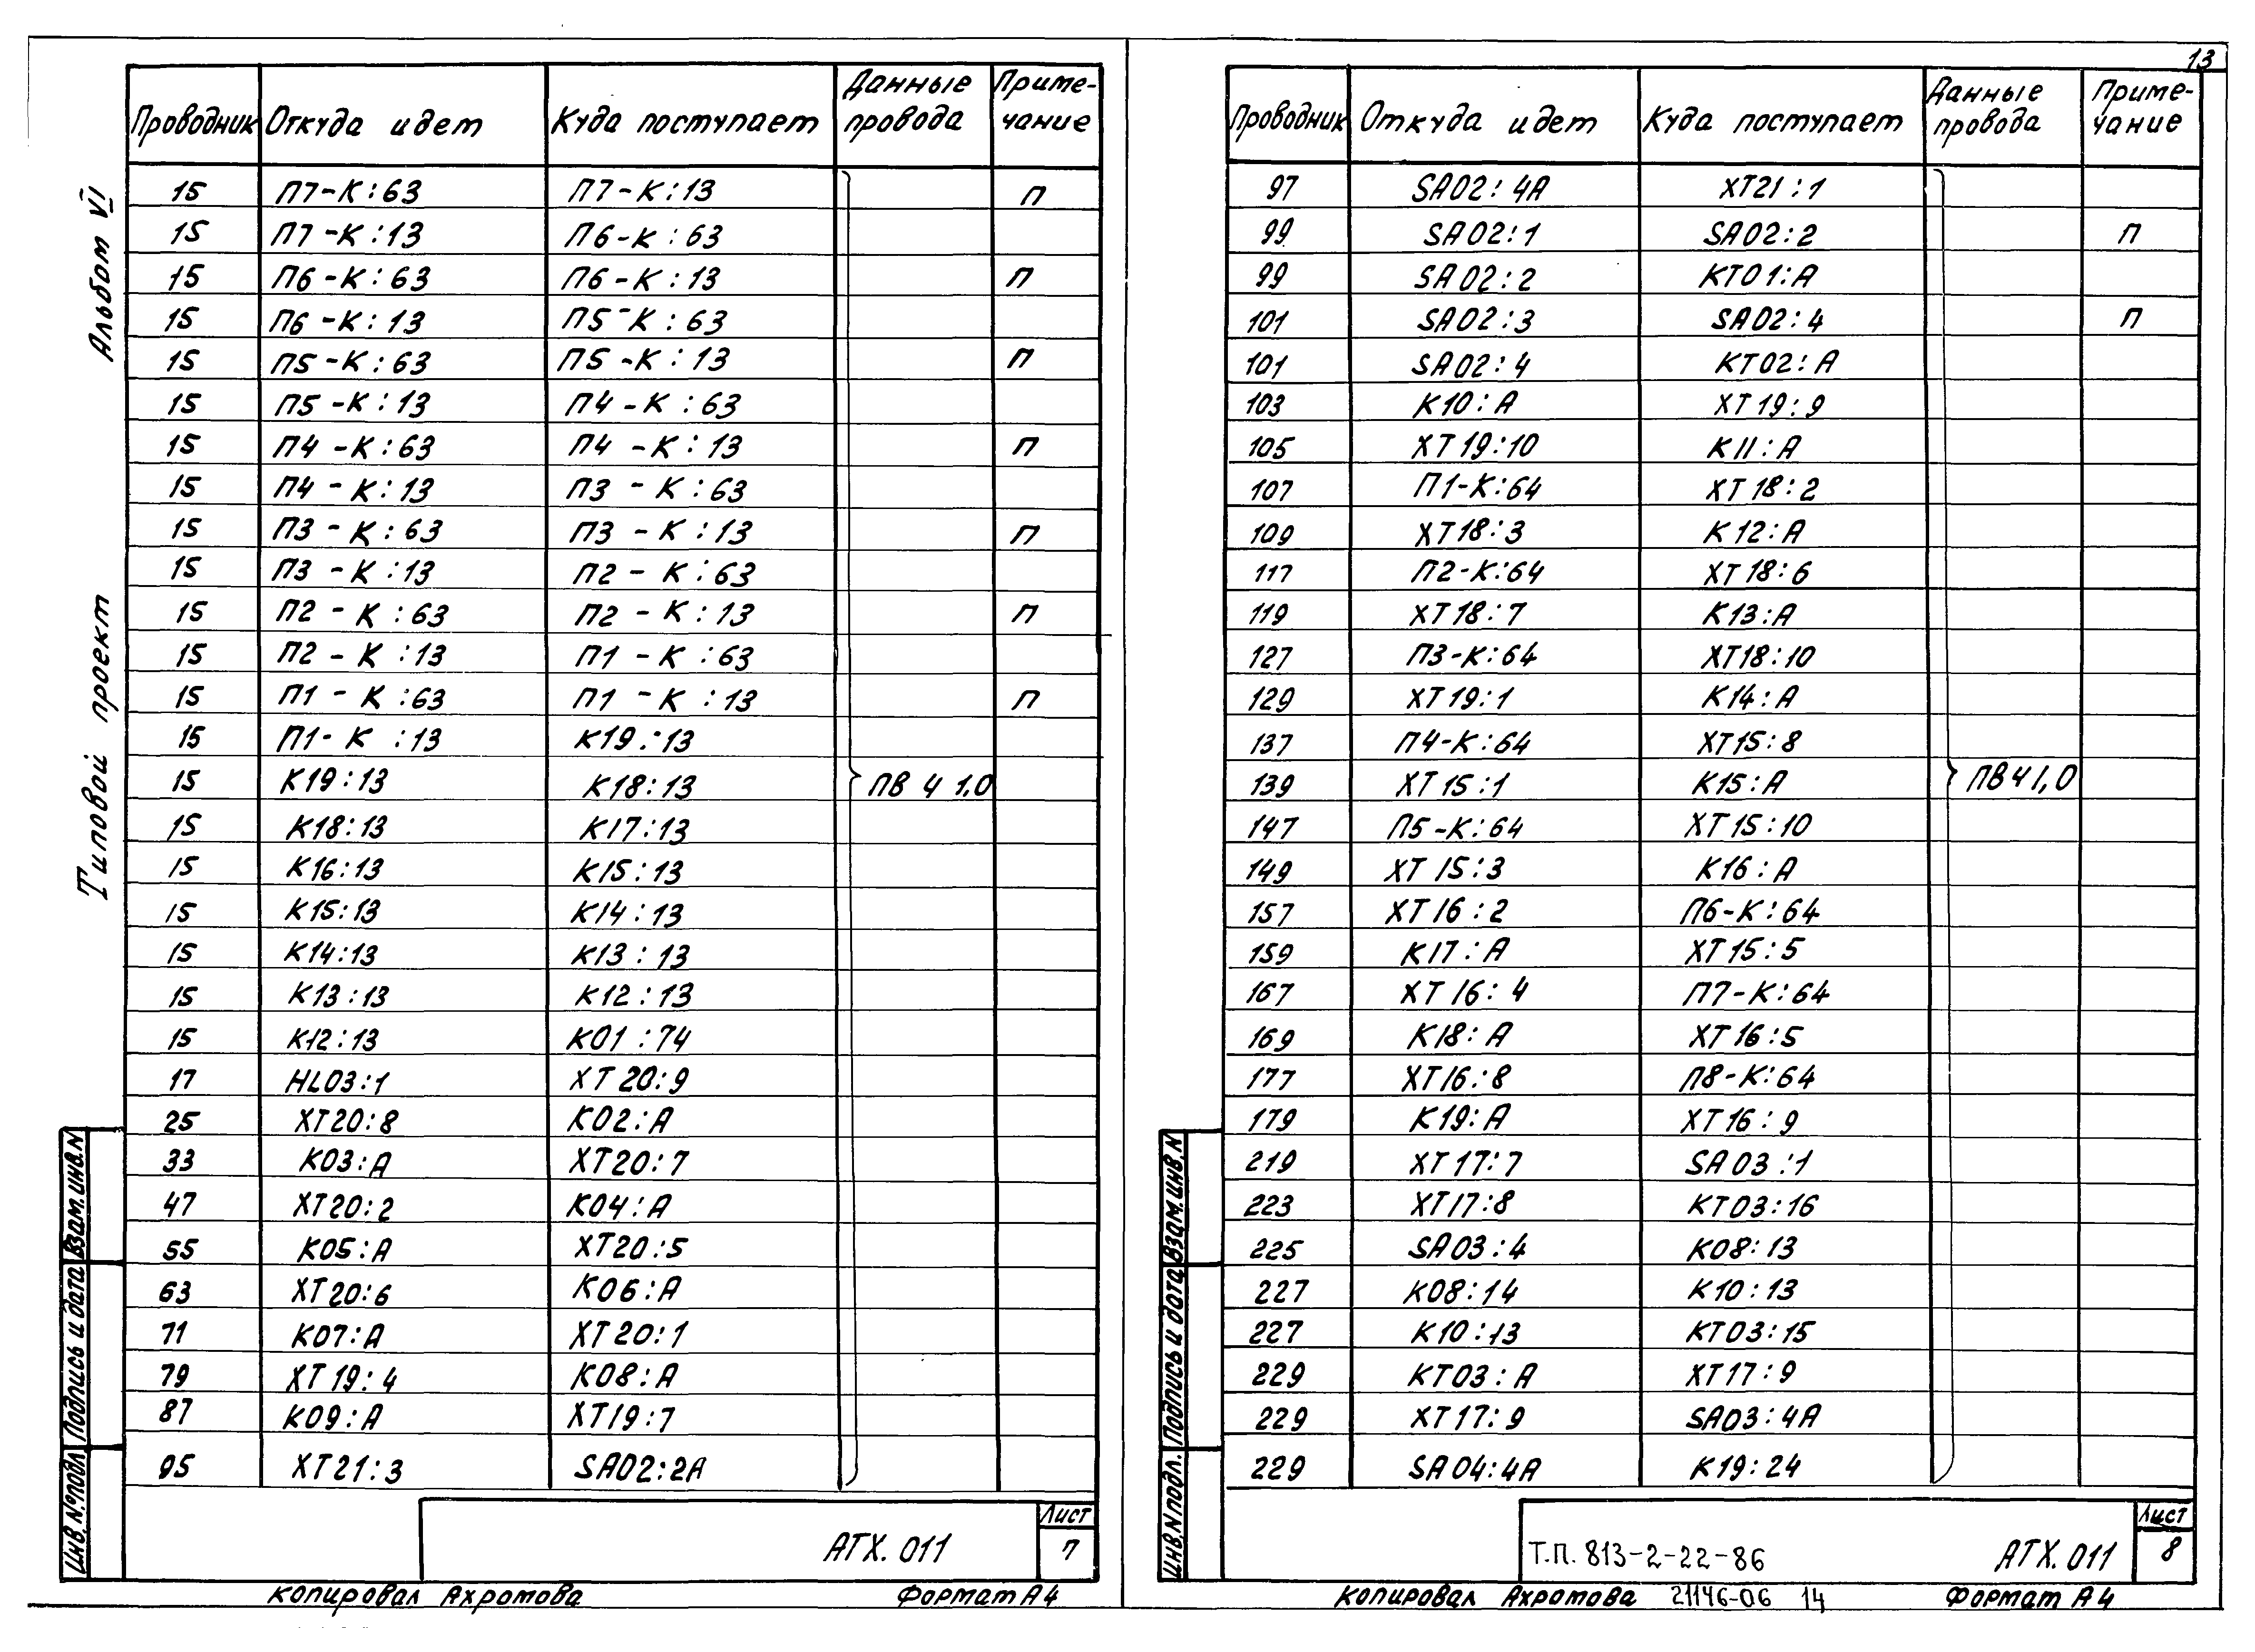 13
Альбом VI
Типовой проект
Проводник Откуда идет Куда поступает Данные провода Примечание
15 П7-К:63 П7-К:13 П
15 П7-К:13 П6-К:63
15 П6-К:63 П6-К:13 П
15 П6-К:13 П5-К:63
15 П5-К:63 П5-К:13 П
15 П5-К:13 П4-К:63
15 П4-К:63 П4-К:13 П
15 П4-К:13 П3-К:63
15 П3-К:63 П3-К:13 П
15 П3-К:13 П2-К:63
15 П2-К:63 П2-К:13 П
15 П2-К:13 П1-К:63
15 П1-К:63 П1-К:13 П
15 П1-К:13 К19:13
15 К19:13 К18:13 ПВ 4 1,0
15 К18:13 К17:13
15 К16:13 К15:13
15 К15:13 К14:13
15 К14:13 К13:13
15 К13:13 К12:13
15 К12:13 К01:74
17 HL03:1 ХТ20:9
25 ХТ20:8 К02:А
33 К03:А ХТ20:7
47 ХТ20:2 К04:А
55 К05:А ХТ20:5
63 ХТ20:6 К06:А
71 К07:А ХТ20:1
79 ХТ19:4 К08:А
87 К09:А ХТ19:7
95 ХТ21:3 SA02:2А
Инв.№подл Подпись и дата Взам.инв.N
АТХ.011
Лист
7
Копировал Ахротова Формат А4
Проводник Откуда идет Куда поступает Данные провода Примечание
97 SA02:4А ХТ21:1
99 SA02:1 SA02:2 П
99 SA02:2 КТ01:А
101 SA02:3 SA02:4 П
101 SA02:4 КТ02:А
103 К10:А ХТ19:9
105 ХТ19:10 К11:А
107 П1-К:64 ХТ18:2
109 ХТ18:3 К12:А
117 П2-К:64 ХТ18:6
119 ХТ18:7 К13:А
127 П3-К:64 ХТ18:10
129 ХТ19:1 К14:А
137 П4-К:64 ХТ15:8
139 ХТ15:1 К15:А ПВ 4 1,0
147 П5-К:64 ХТ15:10
149 ХТ15:3 К16:А
157 ХТ16:2 П6-К:64
159 К17:А ХТ15:5
167 ХТ16:4 П7-К:64
169 К18:А ХТ16:5
177 ХТ16:8 П8-К:64
179 К19:А ХТ16:9
219 ХТ17:7 SA03:1
223 ХТ17:8 КТ03:16
225 SA03:4 К08:13
227 К08:14 К10:13
227 К10:13 КТ03:15
229 КТ03:А ХТ17:9
229 ХТ17:9 SA03:4А
229 SA04:4А К19:24
Инв.N подл. Подпись и дата Взам.инв.N
Т.П. 813-2-22-86 АТХ.011
Лист
8
Копировал Ахротова 21146-06 14 Формат А4